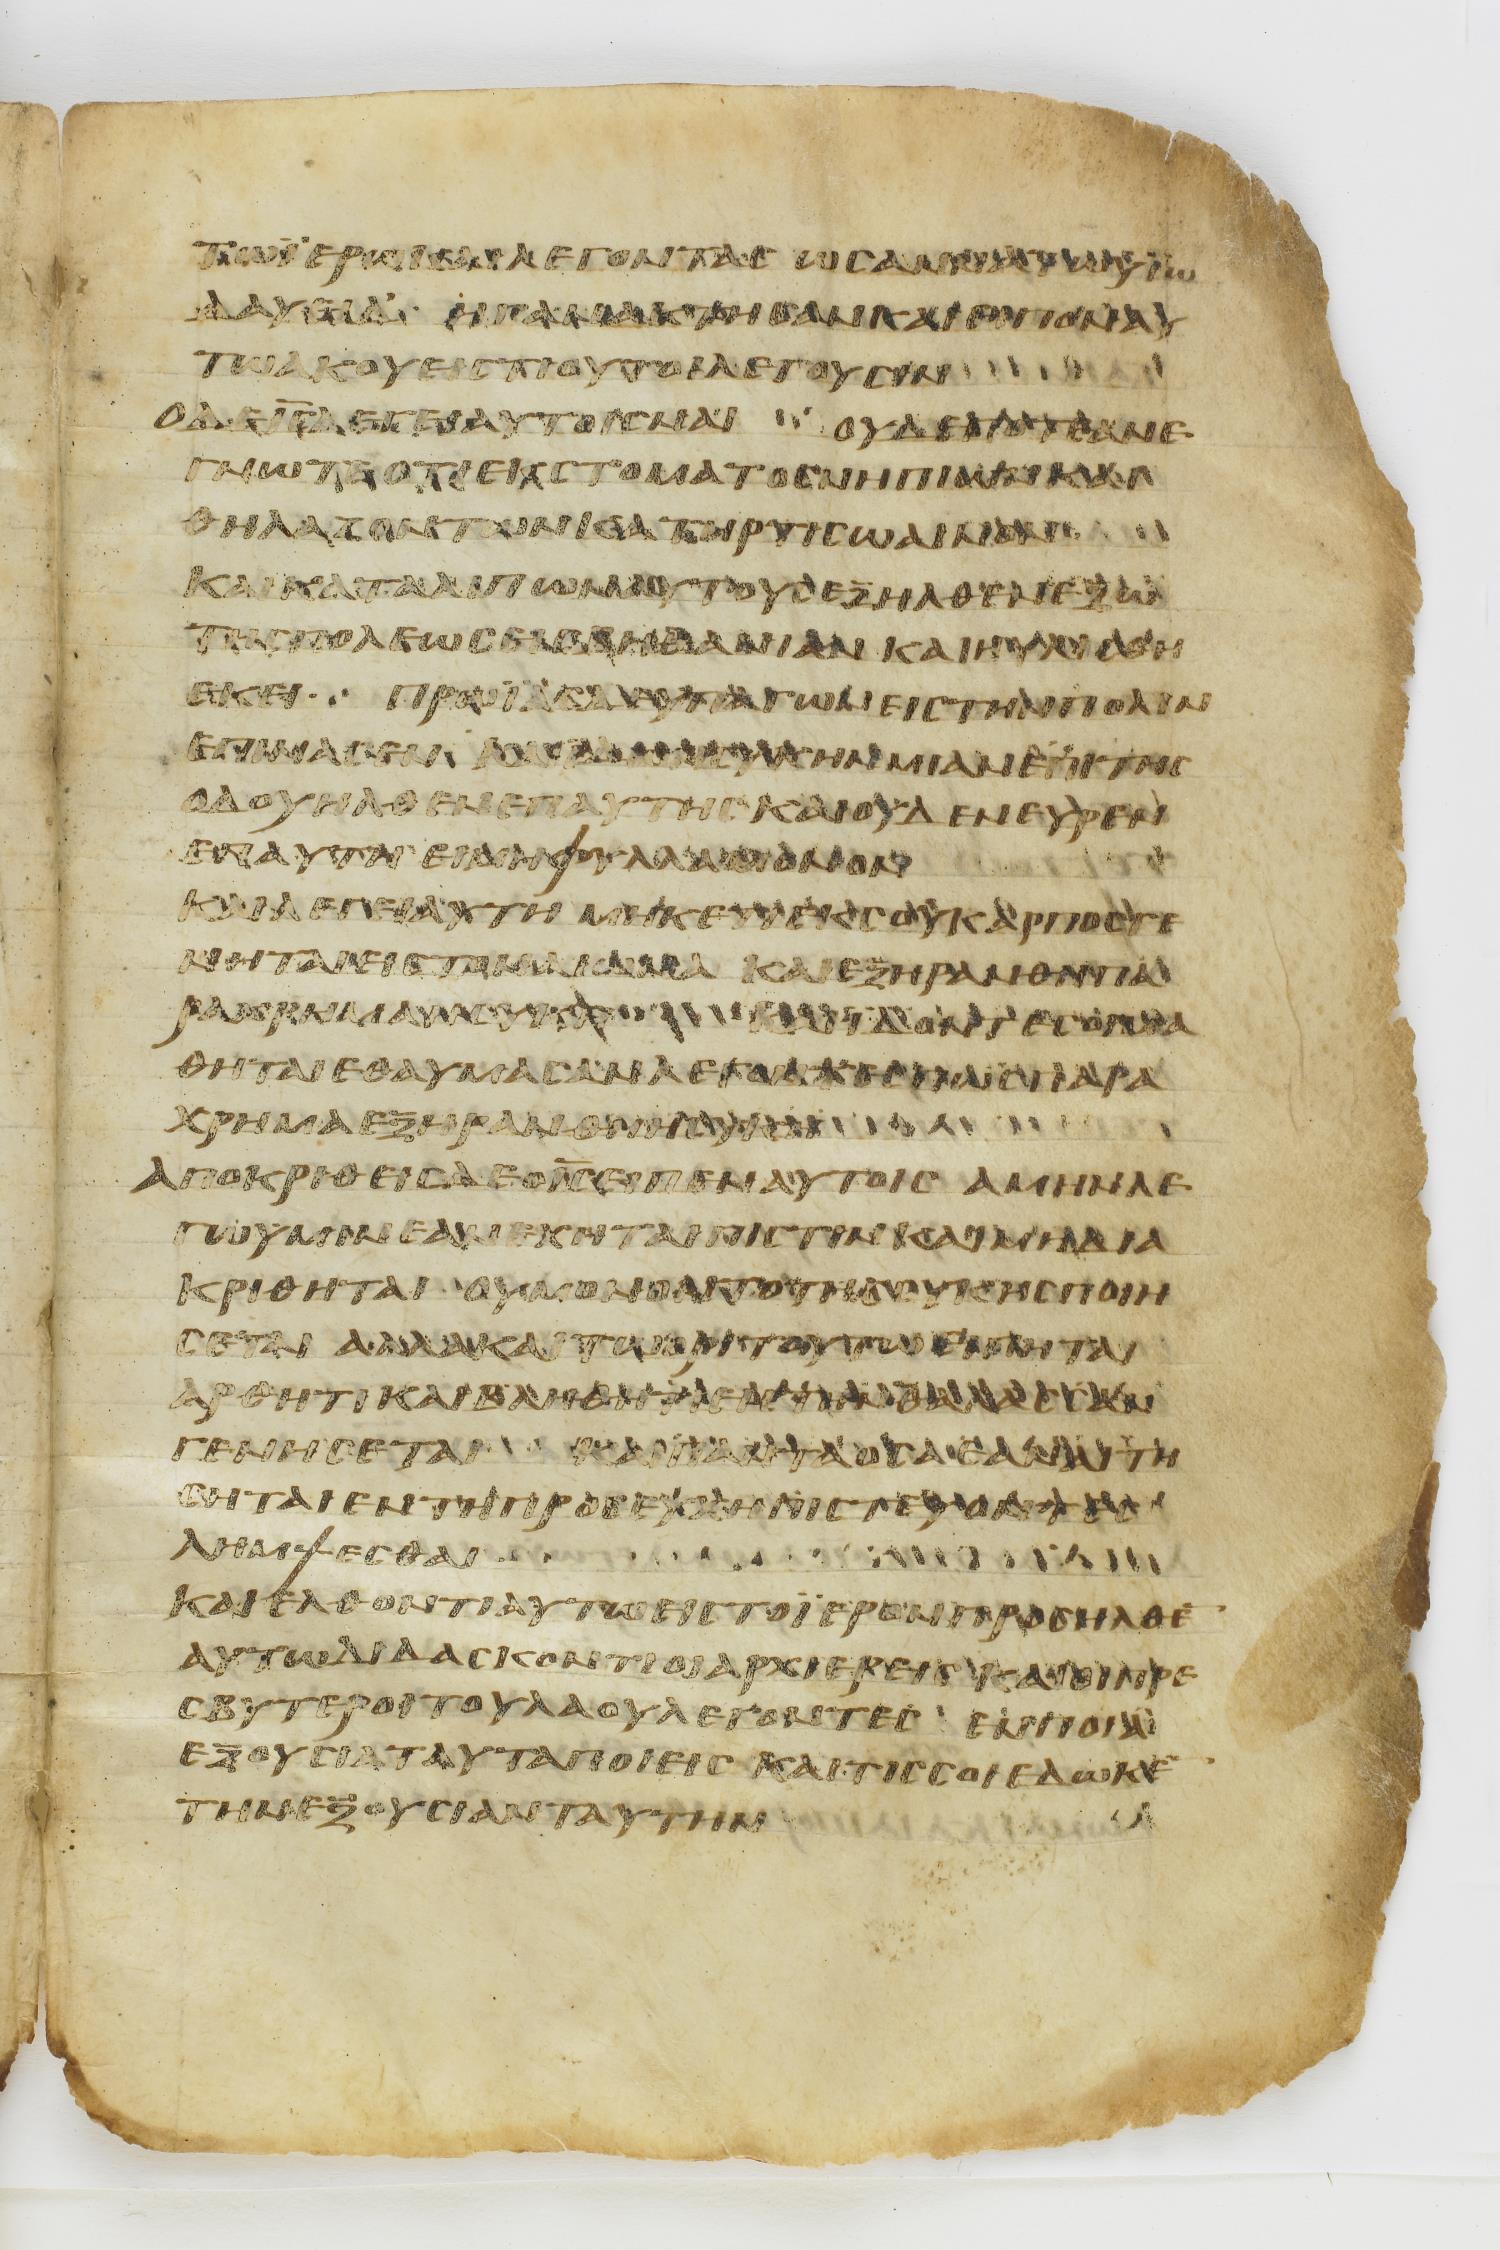 ΤΩ ΙΕΡΩ ΚΑΙ ΛΕΓΟΝΤΑΣ ΩΣΑΝΝΑ ΤΩ ΥΙΩ
ΗΓΑΝΑΚΤΗΣΑΝ ΚΑΙ ΕΙΠΟΝ ΑΥ
ΤΩ ΑΚΟΥΕΙΣ ΤΙ ΟΥΤΟΙ ΛΕΓΟΥΣΙΝ
Ο ΔΕ ΙΣ ΛΕΓΕΙ ΑΥΤΟΙΣ ΝΑΙ ΟΥΔΕΠΟΤΕ ΑΝΕ
ΓΝΩΤΕ ΟΤΙ ΕΚ ΣΤΟΜΑΤΟΣ ΝΗΠΙΩΝ ΚΑΙ
ΘΗΛΑΖΟΝΤΩΝ ΚΑΤΗΡΤΙΣΩ ΑΙΝΟΝ
ΚΑΙ ΚΑΤΑΛΙΠΩΝ ΑΥΤΟΥΣ ΕΞΗΛΘΕΝ ΕΞΩ
ΤΗΣ ΠΟΛΕΩΣ ΕΙΣ ΒΗΘΑΝΙΑΝ ΚΑΙ ΗΥΛΙΣΘΗ
ΕΚΕΙ ΠΡΩΙ ΕΙΣ ΤΗΝ ΠΟΛΙΝ
ΕΠΙΝΑΣΕΝ ΚΑΙ ΙΔΩΝ ΣΥΚΗΝ ΜΙΑΝ ΕΠΙ ΤΗΣ
ΟΔΟΥ ΗΛΘΕΝ ΕΠ ΑΥΤΗΝ ΚΑΙ ΟΥΔΕΝ ΕΥΡΕΝ
ΕΝ ΑΥΤΗ ΕΙ ΜΗ ΦΥΛΛΑ ΜΟΝΟΝ
ΚΑΙ ΛΕΓΕΙ ΑΥΤΗ ΜΗΚΕΤΙ ΕΚ ΣΟΥ ΚΑΡΠΟΣ ΓΕ
ΝΗΤΑΙ ΕΙΣ ΤΟΝ ΑΙΩΝΑ ΚΑΙ ΕΞΗΡΑΝΘΗ ΠΑ
ΡΑΧΡΗΜΑ Η ΣΥΚΗ ΚΑΙ ΙΔΟΝΤΕΣ ΟΙ ΜΑ
ΘΗΤΑΙ ΕΘΑΥΜΑΣΑΝ ΛΕΓΟΝΤΕΣ ΠΩΣ ΠΑΡΑ
ΧΡΗΜΑ ΕΞΗΡΑΝΘΗ Η ΣΥΚΗ
ΑΠΟΚΡΙΘΕΙΣ ΔΕ Ο ΙΣ ΕΙΠΕΝ ΑΥΤΟΙΣ ΑΜΗΝ ΛΕ
ΓΩ ΥΜΙΝ ΕΑΝ ΕΧΗΤΑΙ ΠΙΣΤΙΝ ΚΑΙ ΜΗ ΔΙΑ
ΚΡΙΘΗΤΑΙ ΟΥ ΜΟΝΟΝ ΤΟ ΤΗΣ ΣΥΚΗΣ ΠΟΙΗ
ΣΕΤΑΙ ΑΛΛΑ ΚΑΝ ΤΩ ΟΡΕΙ ΤΟΥΤΩ ΕΙΠΗΤΑΙ
ΑΡΘΗΤΙ ΚΑΙ ΒΛΗΘΗΤΙ ΕΙΣ ΤΗΝ ΘΑΛΑΣΣΑΝ
ΓΕΝΗΣΕΤΑΙ ΚΑΙ ΠΑΝΤΑ ΟΣΑ ΕΑΝ ΑΙΤΗ
ΣΗΤΑΙ ΕΝ ΤΗ ΠΡΟΣΕΥΧΗ ΠΙΣΤΕΥΟΝΤΕΣ
ΛΗΜΨΕΣΘΑΙ
ΚΑΙ ΕΛΘΟΝΤΙ ΑΥΤΩ ΕΙΣ ΤΟ ΙΕΡΟΝ ΠΡΟΣΗΛΘΟ
ΑΥΤΩ ΔΙΔΑΣΚΟΝΤΙ ΟΙ ΑΡΧΙΕΡΕΙΣ ΚΑΙ ΟΙ ΠΡΕ
ΣΒΥΤΕΡΟΙ ΤΟΥ ΛΑΟΥ ΛΕΓΟΝΤΕΣ ΕΝ ΠΟΙΑ
ΕΞΟΥΣΙΑ ΤΑΥΤΑ ΠΟΙΕΙΣ ΚΑΙ ΤΙΣ ΣΟΙ ΕΔΩΚΕ
ΤΗΝ ΕΞΟΥΣΙΑΝ ΤΑΥΤΗΝ